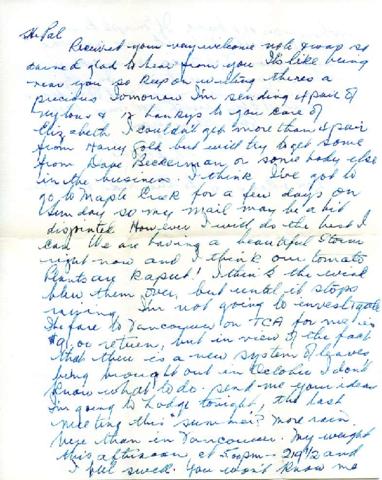 Hi Pal
Received your very welcome note & was so
darned glad to hear from you It's like being
near you so keep on writing theres a
precious. Tomorrow I'm sending 1 pair of
nylons & 12 hankys to you care of
Elizabeth I couldn't get more than 1 pair
from Harry Folk but will try to get some
from Dave Beckerman or some body else
in the business. I think I've got to
go to Maple Creek for a few days on
Sunday so my mail may be a bit
disjointed However I will do the best I
can We are having a beautiful storm
right now and I think our tomato
plants are kaput! I think the wind
blew them over, but until it stops
raining I'm not going to investigate
The fare to Vancouver on TCA for me is
$91.00 return, but in view of the fact
that there is a new system of leaves
being brought out in October I don't
know what to do. Send me your ideas
I'm going to Lodge tonight, the last
meeting this "summer"? More rain
here than in Vancouver. My weight
this afternoon, at 5oopm - 219½ and
I feel swell. You won't know me